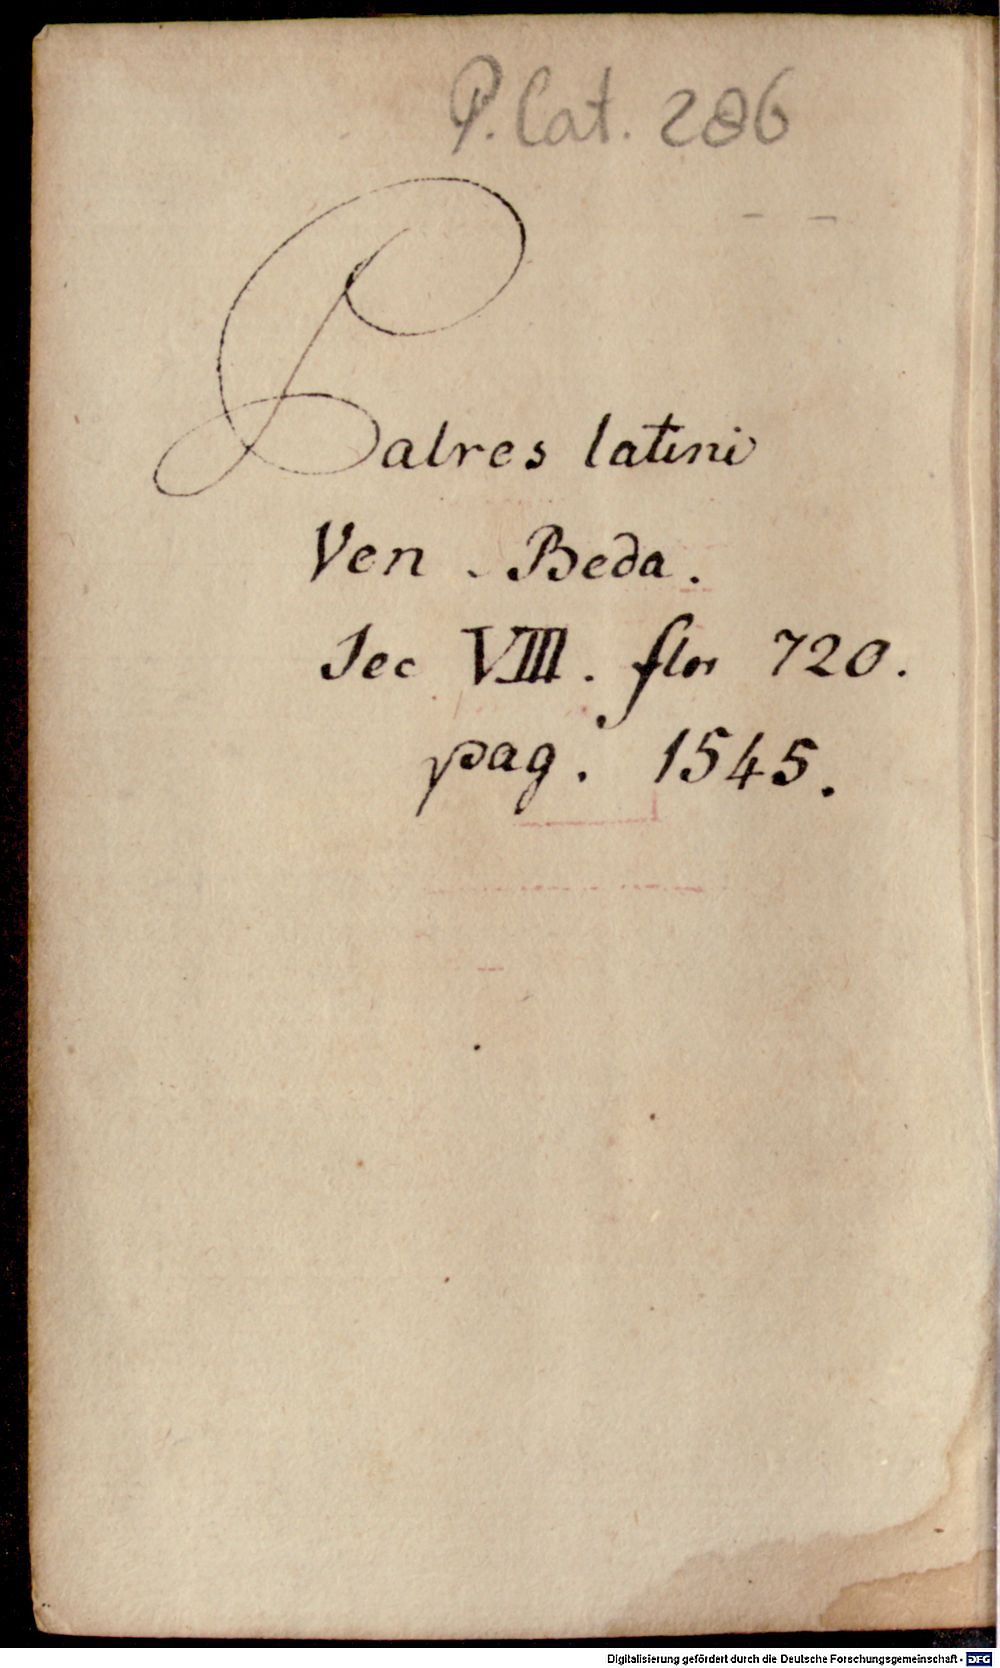 P. lat. 286
Patres latini
Ven. Beda.
Sec VIII. flor 720.
pag. 1545.
Digitalisierung gefördert durch die Deutsche Forschungsgemeinschaft - DFG